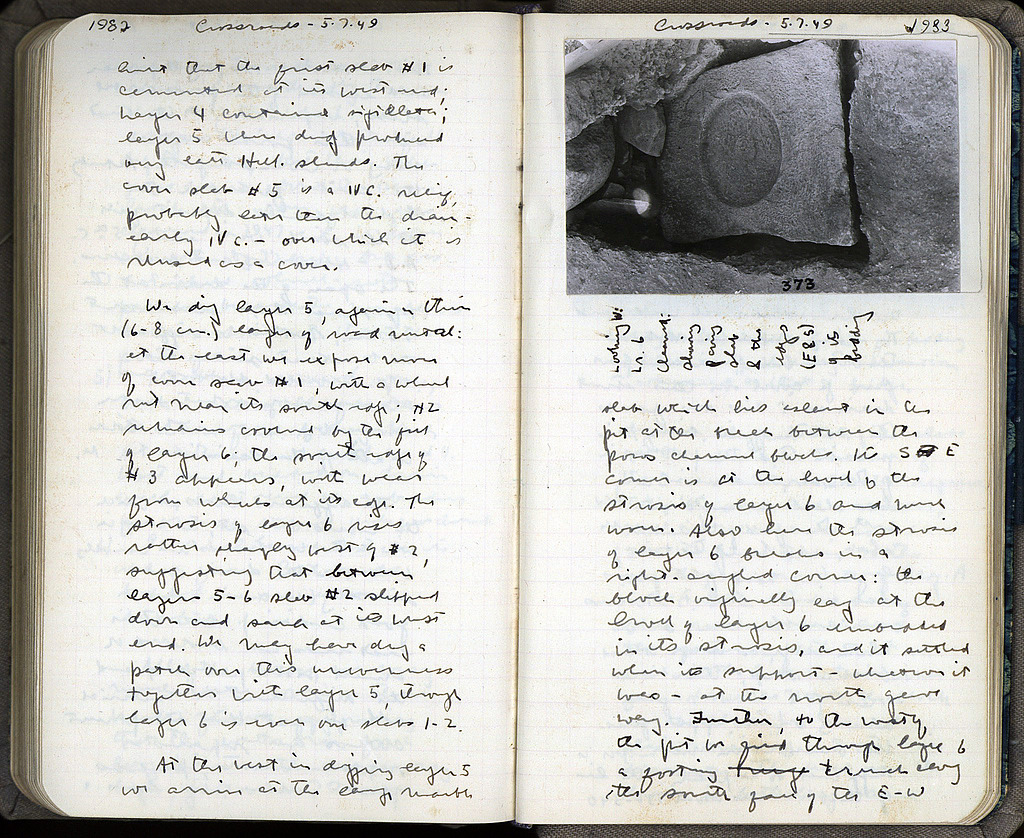 1982 Crossroads - 5.7.49
hint that the first slab #1 is
cemented at its west end;
Layer 4 contained sigillata;
layer 5 when dug produced
only late Hell. sherds. The
cover slab #5 is a IV c. relief,
probably later than the drain -
early IV c. - over which it is
reused as a cover.
We dig layer 5, again a thin
(6-8 cm.) layer of road metal:
at the east we expose more
of cover slab #1, with a wheel
rut near its south edge, #2
remains covered by the fill
of layer 6, the south edge of
#3 appears, with wear
from wheels at its edge. The
strosis of layer 6 rises
rather sharply west of #2,
suggesting that between
layers 5-6 slab #2 slipped
down and sank at its west
end. We may have dug a
patch over this unevenness
together with layer 5, though
layer 6 is over our slabs 1-2.
At the west in digging layer 5
we arrive at the large marble
Crossroads - 5.7.49 1983
373
Looking W:
Ln. 6
cleaned:
showing
paving
slab
& the
edge
(E85)
of its
bedding
slab which lies aslant in the
pit at the break between the
poros channel blocks. Its S E
corner is at the level of the
strosis of layer 6 and much
worn. Also here the strosis
of layer 6 breaks in a
right-angled corner: the
block originally lay at the
level of layer 6 embedded
in its strosis, and it settled
when its support - whatever it
was - at the north gave
way. Further, to the west of
the pit we find through layer 6
a posting trench along
the south face of the E-W